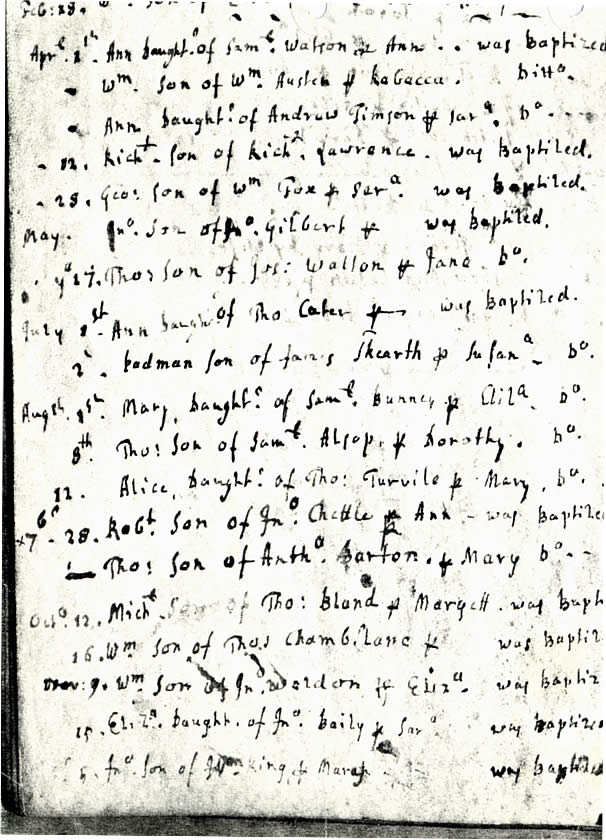 Feb: 28.
Apr.l 1st. Ann Daught.r of Sam.l Watson & Ann . . was Baptized
Wm. Son of Wm. Austen & Rabacca . Ditto.
Ann Daught.r of Andrew Timson & Sar.a. Do.
- 12. Rich.d Son of Rich.d Lawrence . was Baptized.
- 28. Geo: Son of Wm Fox & Sar.a was Baptized.
May. Jno. Son of Jno. Gilbert & was Baptized.
ye 27. Tho: Son of Jos: Watson & Jane Do.
July 1st Ann Daught.r of Tho Cater & was Baptized.
2d. Badman Son of James Skearth & Susan.a Do.
Augst. 1st. Mary, Daught.r of Sam.l Bunney & Eliz.a Do.
8th. Tho: Son of Sam.l Alsop, & Dorothy . Do.
12. Alice, Daught.r of Tho: Turvile & Mary, Do.
- 28. Rob.t Son of Jno. Chettle & Ann - was Baptized
Tho: Son of Anth.o Barton . & Mary Do. -
Octo. 12. Mich.l Son of Tho: Bland & Margett . was Bapti
16. Wm. Son of Thos Chamb.lane & was Baptiz
Nov: 9. Wm. Son of Jno. Weldon & Eliz.a. was Baptiz
15. Eliz.a Daught. of Jno. Baily & Sar.a was Baptized
5. Jno. Son of King & Marah was Baptized